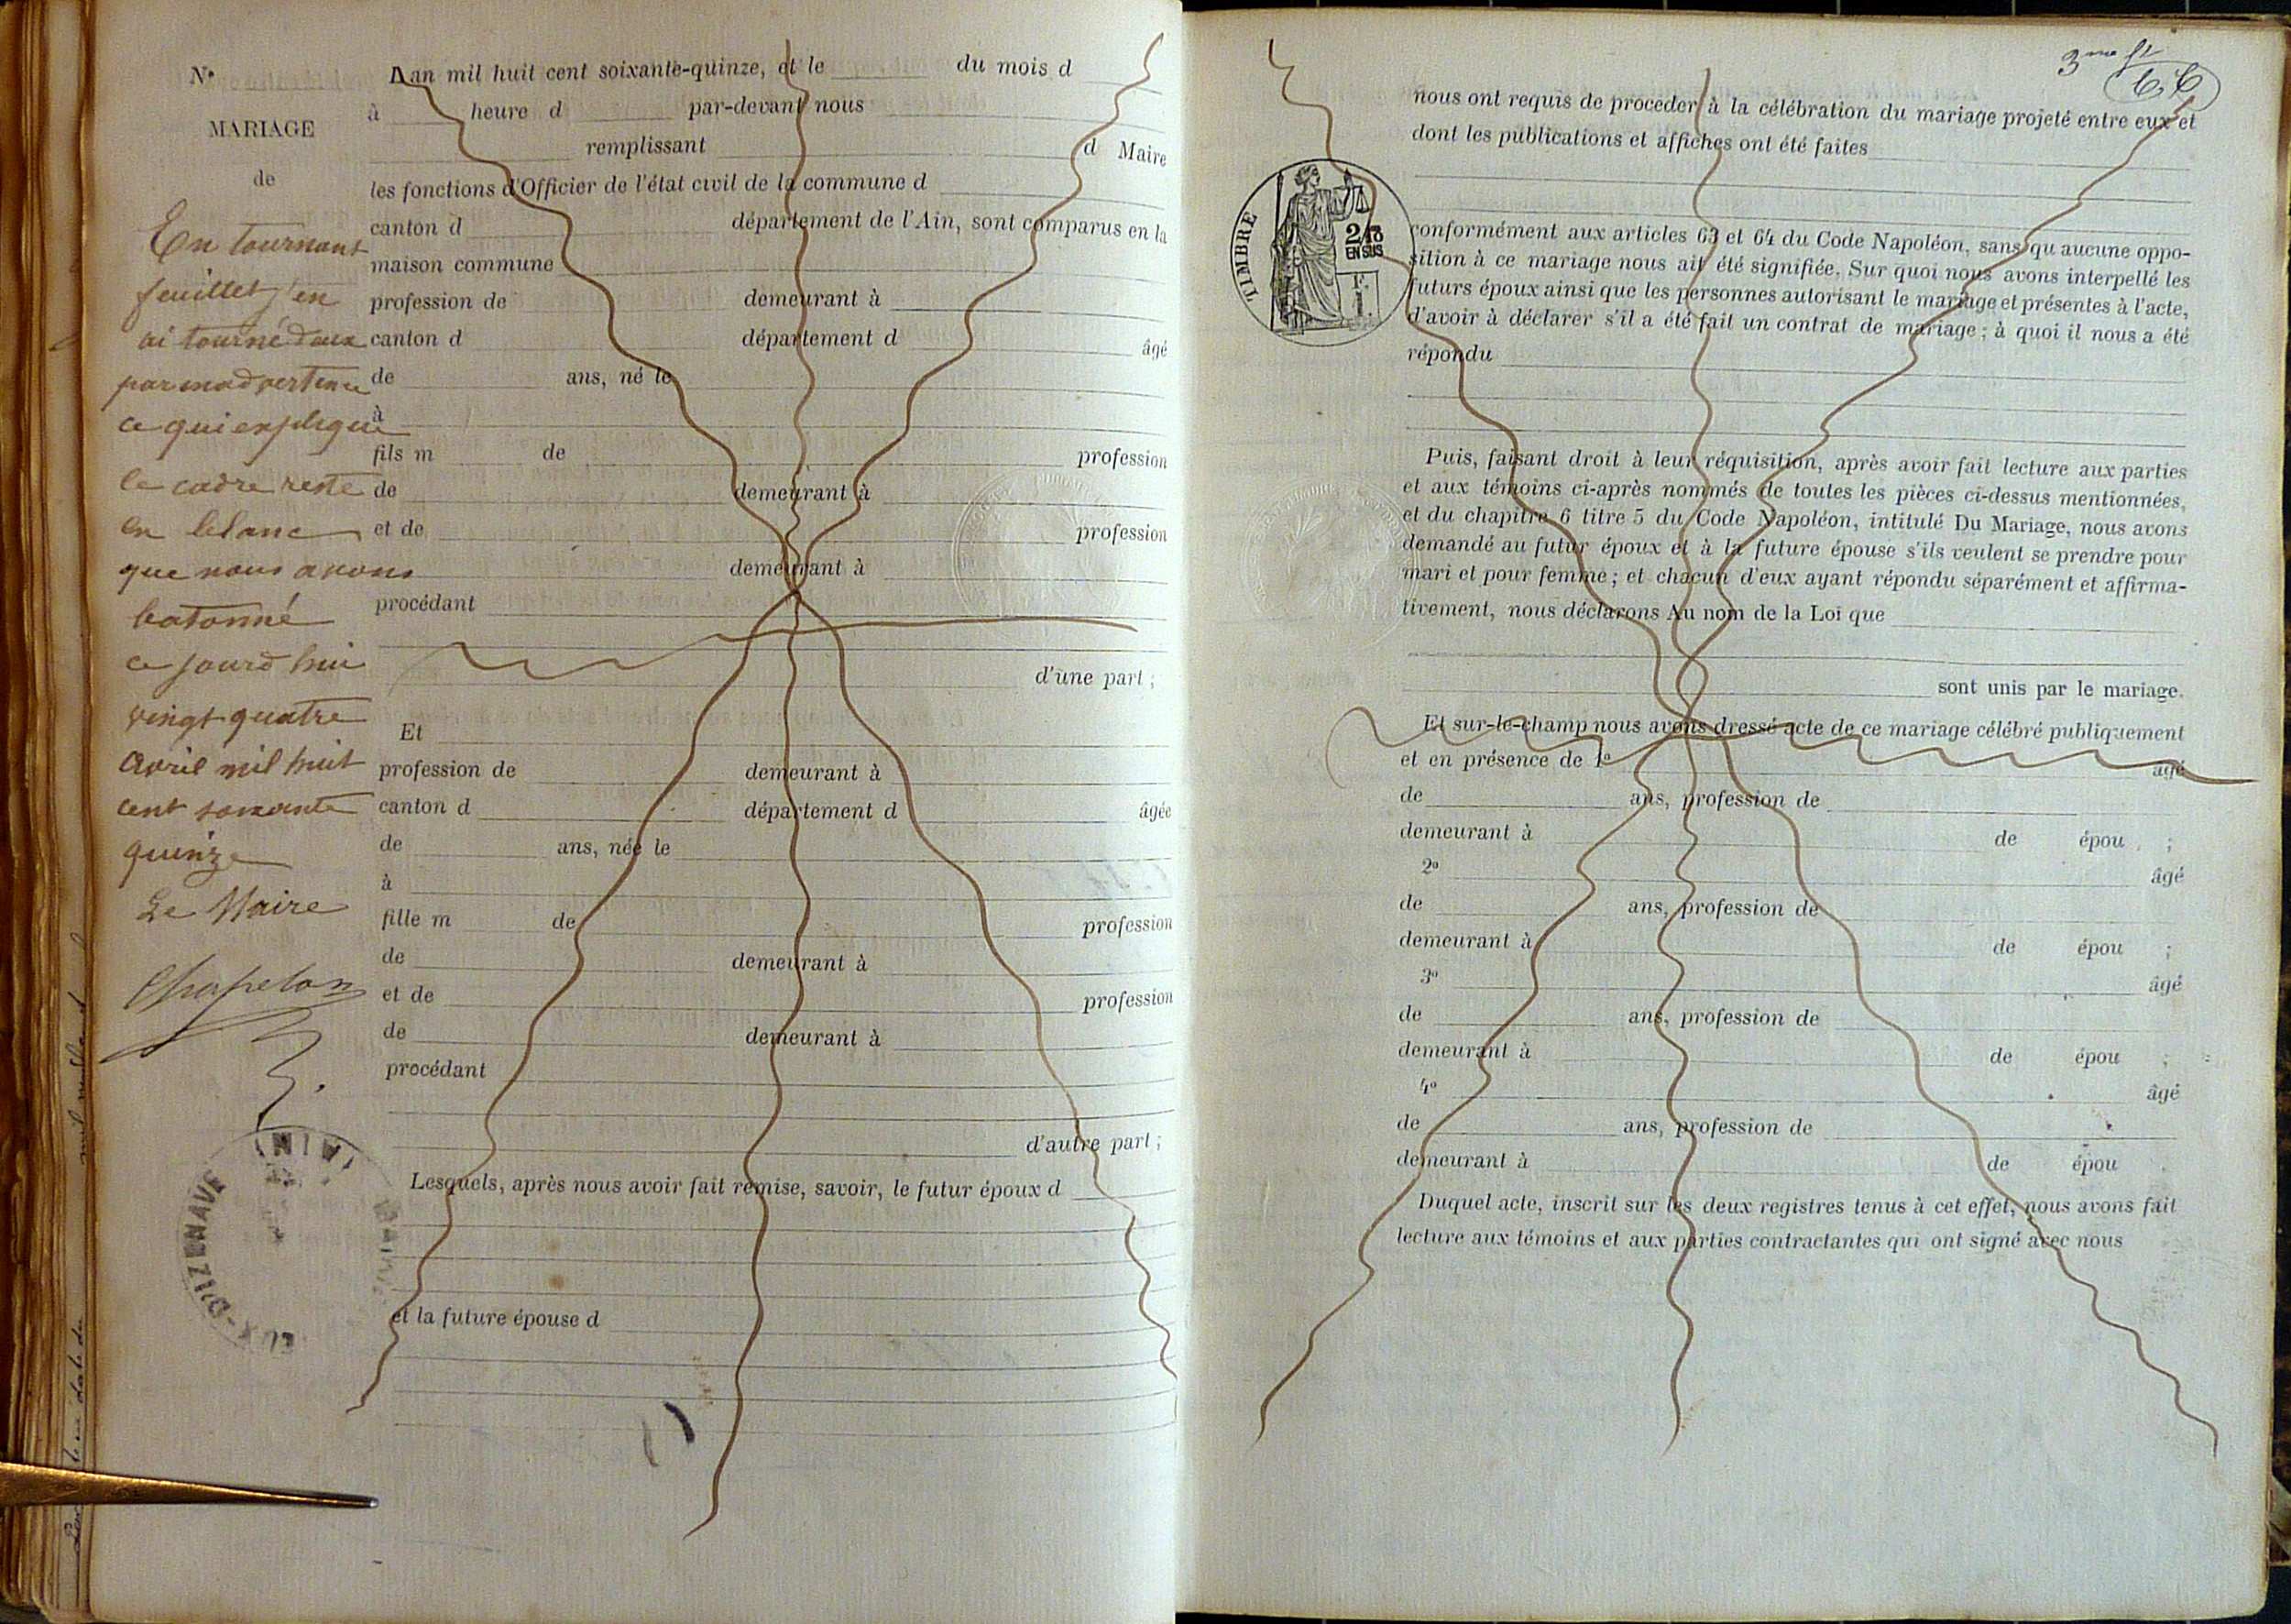 N°
MARIAGE
de
En tournant
feuillet j'en
ai tourné deux
par inadvertence
ce qui explique
le cadre resté
en blanc
que nous avons
batonné
ce jourd'hui
vingt quatre
avril mil huit
cent soixante
quinze
Le Maire
Chapelon
DIZENAVE
(AIN)
L'an mil huit cent soixante-quinze, et le du mois d
à heure d par-devant nous
remplissant d Maire
les fonctions d'Officier de l'état civil de la commune d
canton d département de l'Ain, sont comparus en la
maison commune
profession de demeurant à
canton d département d âgé
de ans, né le
à
fils m de profession
de demeurant à
et de profession
demeurant à
procédant
d'une part ;
Et
profession de demeurant à
canton d département d âgée
de ans, née le
à
fille m de profession
de demeurant à
et de profession
de demeurant à
procédant
d'autre part ;
Lesquels, après nous avoir fait remise, savoir, le futur époux d
et la future épouse d
3me ft
nous ont requis de proceder à la célébration du mariage projeté entre eux et
dont les publications et affiches ont été faites
TIMBRE
2/10
EN SUS
1 F.
conformément aux articles 63 et 64 du Code Napoléon, sans qu'aucune oppo-
sition à ce mariage nous ait été signifiée. Sur quoi nous avons interpellé les
futurs époux ainsi que les personnes autorisant le mariage et présentes à l'acte,
d'avoir à déclarer s'il a été fait un contrat de mariage ; à quoi il nous a été
répondu
Puis, faisant droit à leur réquisition, après avoir fait lecture aux parties
et aux témoins ci-après nommés de toutes les pièces ci-dessus mentionnées,
et du chapitre 6 titre 5 du Code Napoléon, intitulé Du Mariage, nous avons
demandé au futur époux et à la future épouse s'ils veulent se prendre pour
mari et pour femme ; et chacun d'eux ayant répondu séparément et affirma-
tivement, nous déclarons Au nom de la Loi que
sont unis par le mariage.
Et sur-le-champ nous avons dressé acte de ce mariage célébré publiquement
et en présence de 1° âgé
de ans, profession de
demeurant à de épou ;
2° âgé
de ans, profession de
demeurant à de épou ;
3° âgé
de ans, profession de
demeurant à de épou ;
4° âgé
de ans, profession de
demeurant à de épou
Duquel acte, inscrit sur les deux registres tenus à cet effet, nous avons fait
lecture aux témoins et aux parties contractantes qui ont signé avec nous